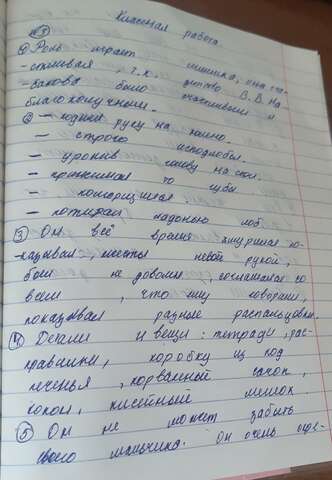 Классная работа
№3
① Роль играет шишка, она сча-
стливая, т.к. детство В.В. На-
бокова было счастливым и
благополучным.
② – уронив руку на колено.
– строго исподлобья.
– уронив голову на стол.
– прижимая то губы
–
– потирая ладонью лоб.
③ Он всё время щурился по-
казывал, жесты левой рукой,
был не доволен, соглашался со
всем, что ему говорили,
показывал разные
④ Детали и вещи: тетради, рас-
правилки, коробку из под
печенья, порванный сачок,
кокон, кисейный мешок.
⑤ Он не может забыть
своего мальчика. Он очень